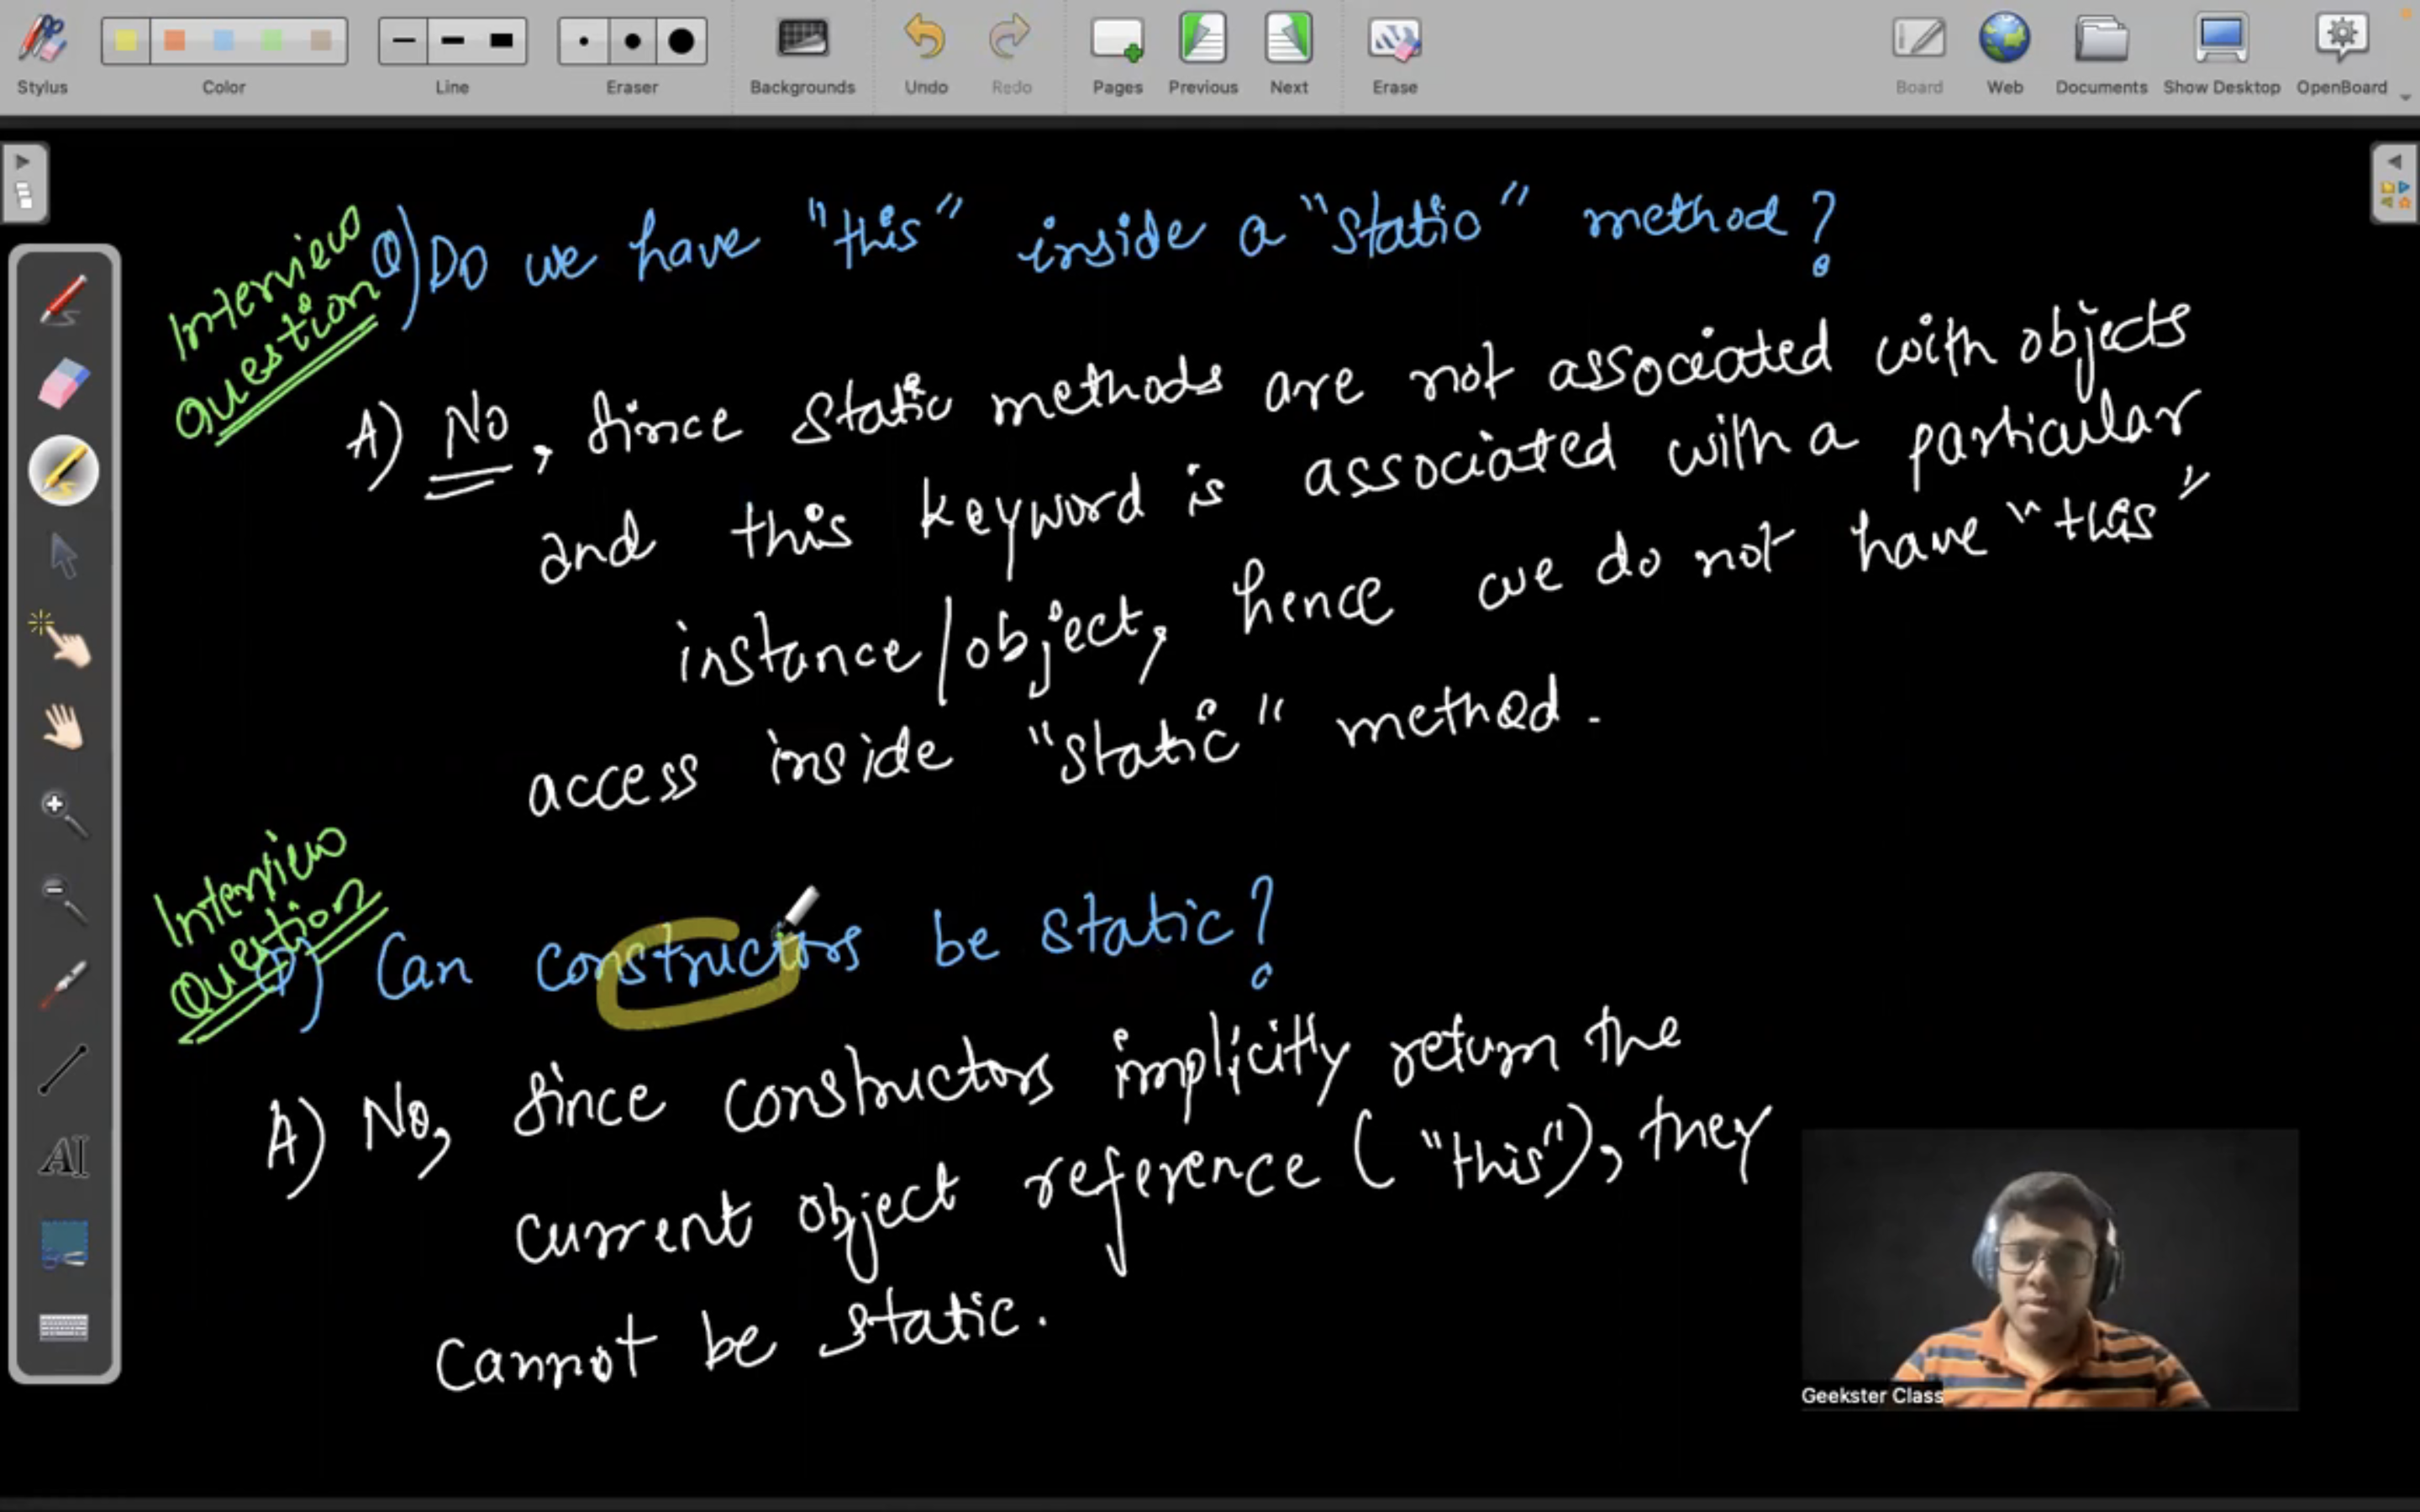 Stylus
Color
Line
Eraser
Backgrounds
Undo
Redo
Pages
Previous
Next
Erase
Board
Web
Documents
Show Desktop
OpenBoard
Interview
Question
Q) Do we have "this" inside a "static" method?
A) No, Since static methods are not associated with objects
and this keyword is associated with a particular
instance/object, hence we do not have "this"
access inside "static" method.
Interview
Question
Q) Can constructors be static?
A) No, Since constructors implicitly return the
current object reference ("this"), they
cannot be static.
AI
Geekster Class